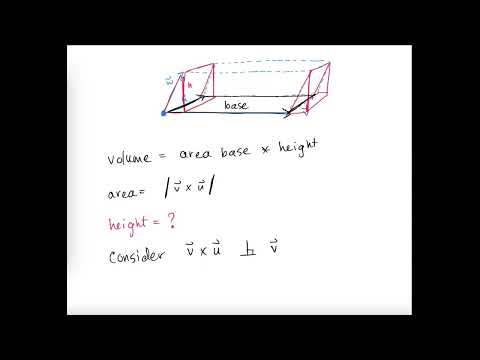 w⃗ h
base
volume = area base * height
area = |v⃗ × u⃗|
height = ?
Consider v⃗ × u⃗ ⊥ v⃗